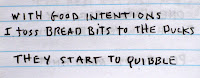 WITH GOOD INTENTIONS
I TOSS BREAD BITS TO THE DUCKS
THEY START TO QUIBBLE